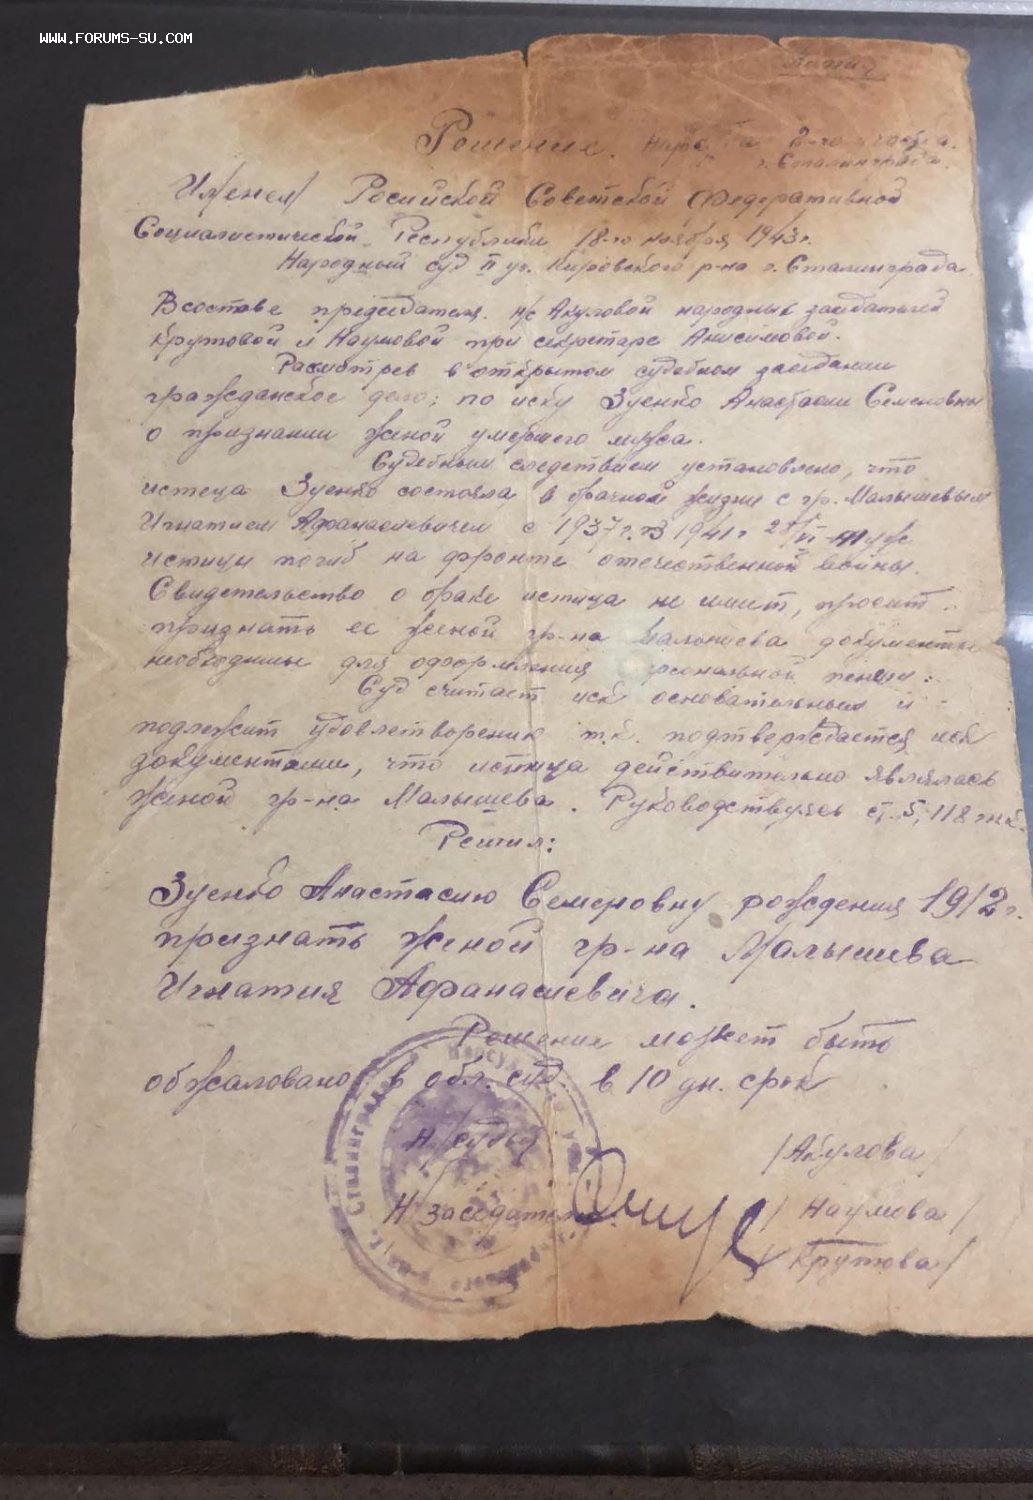 WWW.FORUMS-SU.COM
Копия
Решение. Нар 2-го
г. Сталинграда.
Именем Росийской Советской Федеративной
Социалистической Республики 18-го ноября 1943 г.
Народный суд II уч. Кировского р-на г. Сталинграда
В составе председателя н/с Акуловой народных заседателей
Крутовой и Наумовой при секретаре Анисимовой.
Расмотрев в открытом судебном заседании
гражданское дело: по иску Зуенко Анастасии Семеновны
о признании женой умершего мужа.
Судебным следствием установлено, что
истеца Зуенко состояла в брачной жизни с гр. Малышевым
Игнатием Афанасиевичем с 1937 г. в 1941 г. муж
истицы погиб на фронте отечественной войны.
Свидетельство о браке истица не имеет, просит
признать ее женой гр-на Малышева документы
необходимы для оформления пенсии.
Суд считает иск основательным и
подлежит удовлетворению т.к. подтверждается
документами, что истица действительно являлась
женой гр-на Малышева. Руководствуясь ст. 5, 118
Решил:
Зуенко Анастасию Семеновну рождения 1912 г.
признать женой гр-на Малышева
Игнатия Афанасиевича.
Решение может быть
обжаловано в обл. суд. в 10 дн. срок
Н/судья /Акулова/
Н/заседатели /Наумова/
/Крутова/
Сталинграда